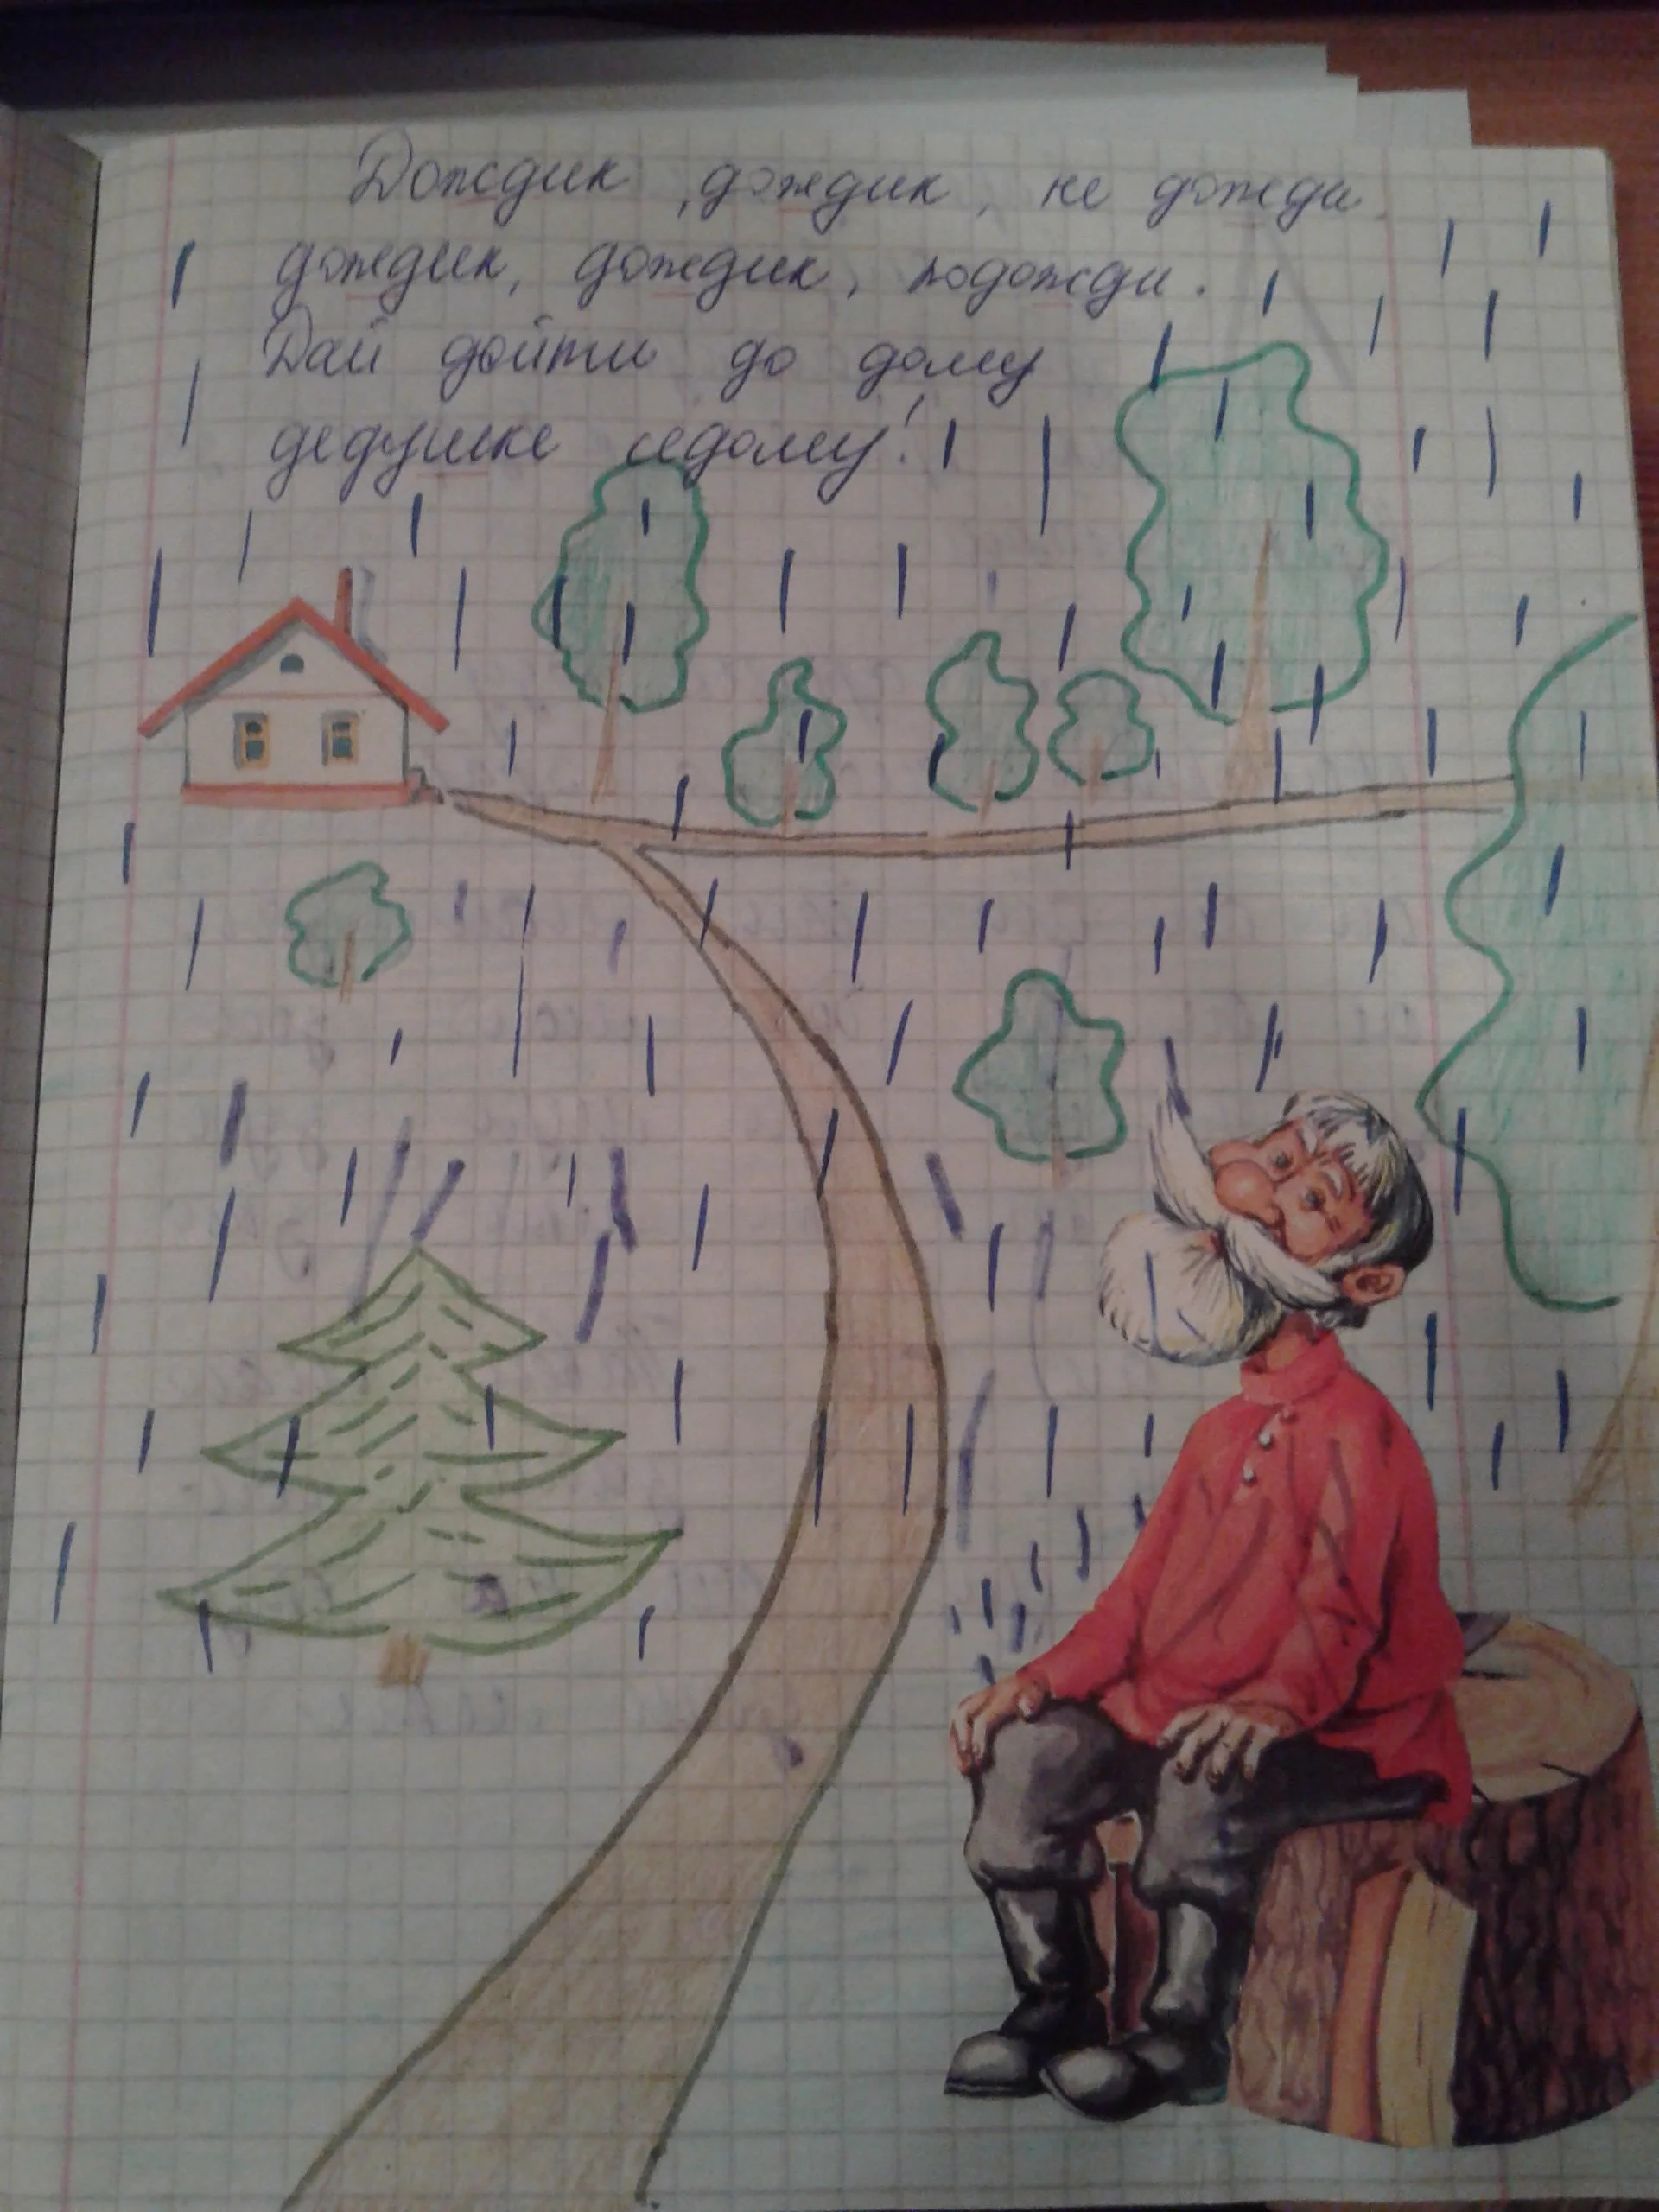 Дождик, дождик, не дожди
дождик, дождик, подожди.
Дай дойти до дому
дедушке седому!